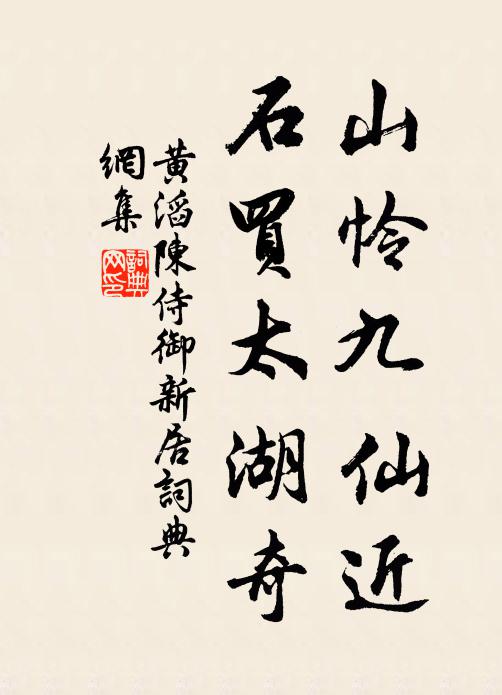 山怜九仙近
石買太湖奇
黃滔陳侍御新居詞典
網集
詞典
网印